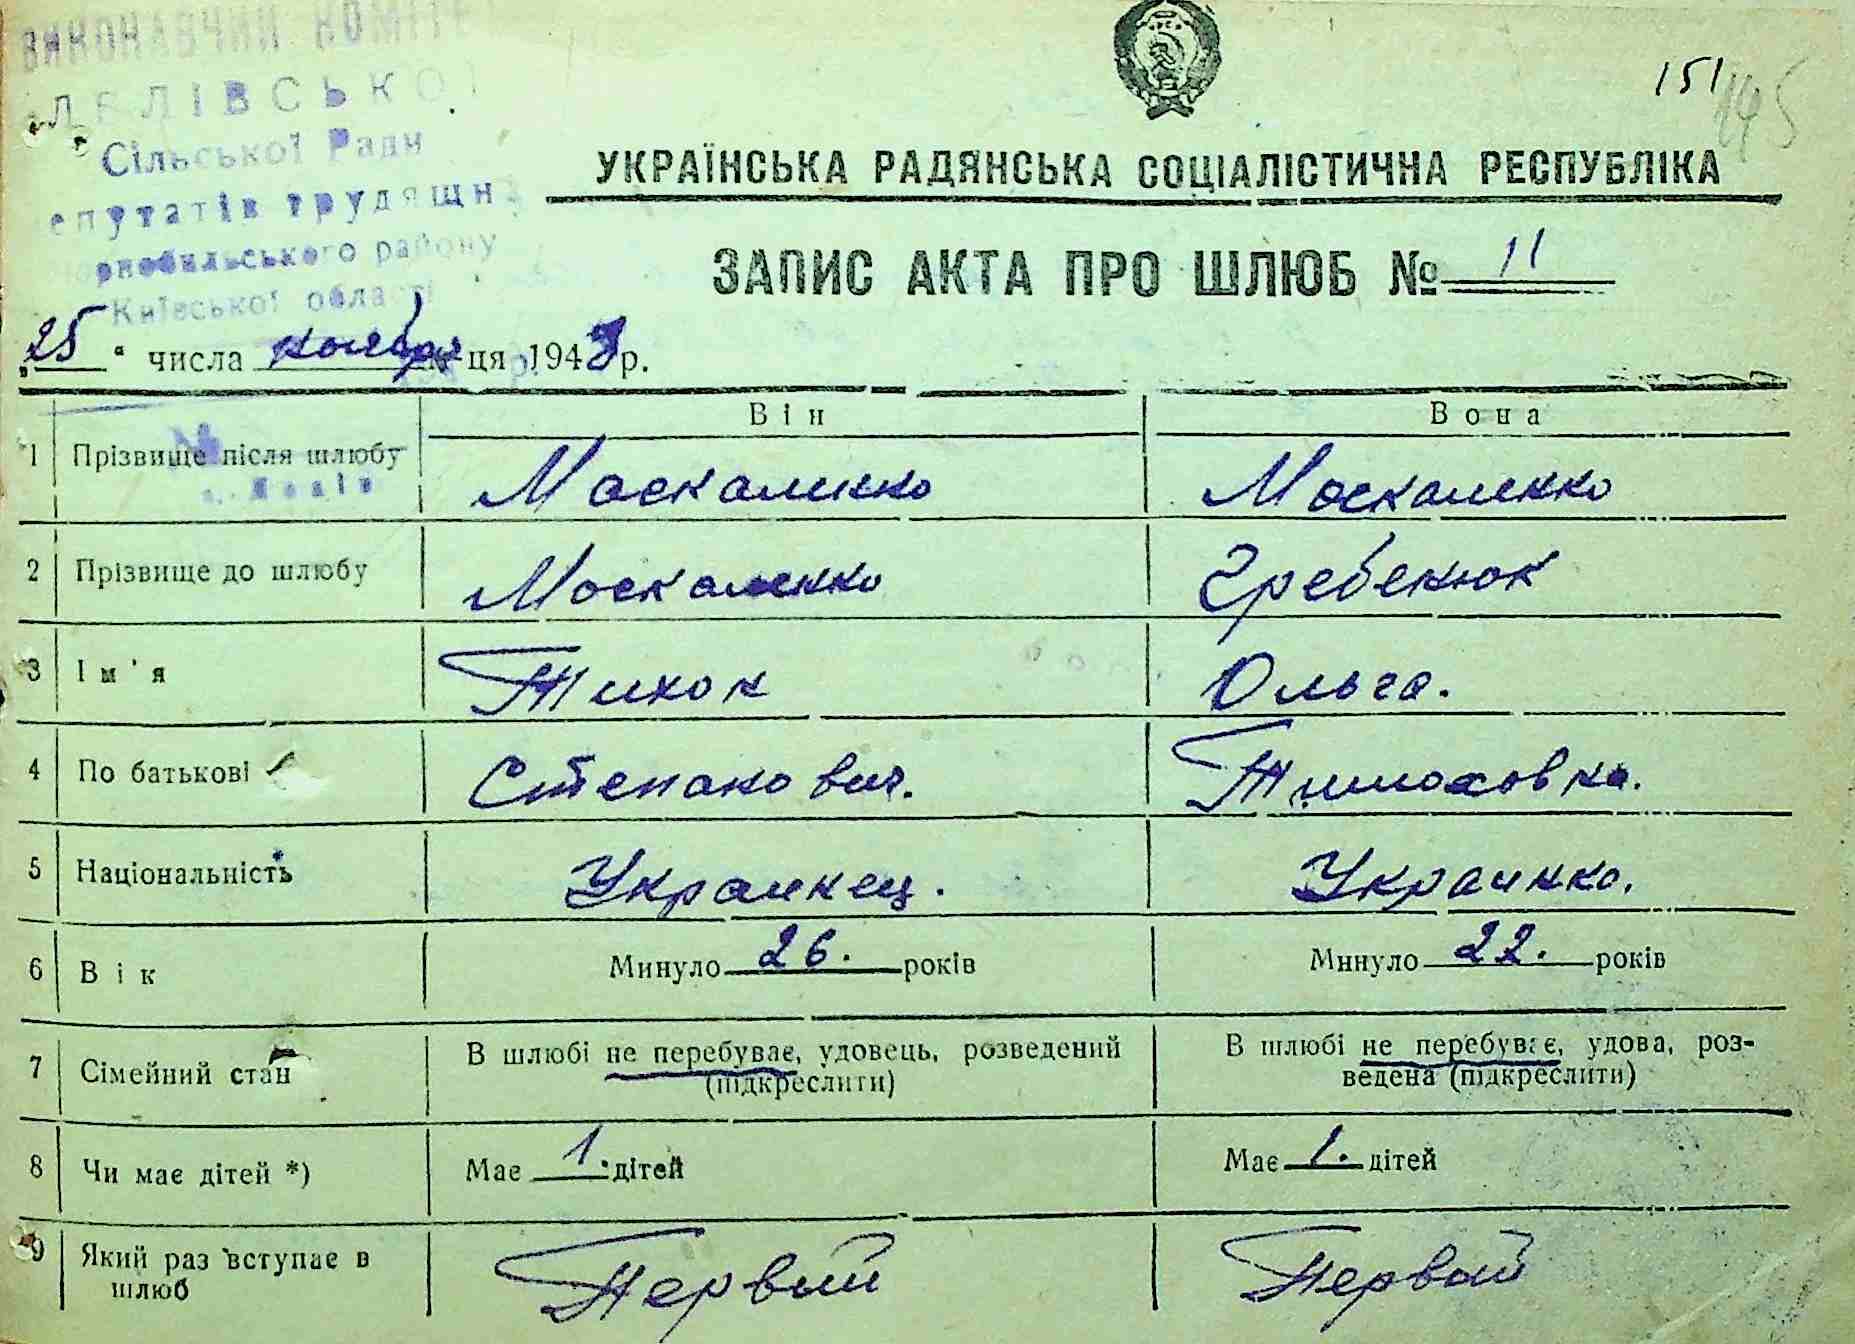 ВИКОНАВЧИЙ КОМІТЕ
ЛЕЛІВСЬКОЇ
Сільської Ради
епутатів трудящи
орнобильського району
Київської області
151
145
УКРАЇНСЬКА РАДЯНСЬКА СОЦІАЛІСТИЧНА РЕСПУБЛІКА
ЗАПИС АКТА ПРО ШЛЮБ № 11
„25“ числа ноября ця 1948 р.
Він Вона
1 Прізвище після шлюбу Москаленко Москаленко
2 Прізвище до шлюбу Москаленко Гребенюк
3 Ім'я Тихон Ольга.
4 По батькові Степанович. Тимоховна.
5 Національність Украинец. Украинка.
6 Вік Минуло 26. років Минуло 22. років
7 Сімейний стан В шлюбі не перебуває, удовець, розведений (підкреслити) В шлюбі не перебуває, удова, роз-
ведена (підкреслити)
8 Чи має дітей *) Має 1. дітей Має 1. дітей
9 Який раз вступає в Первый Первый
шлюб